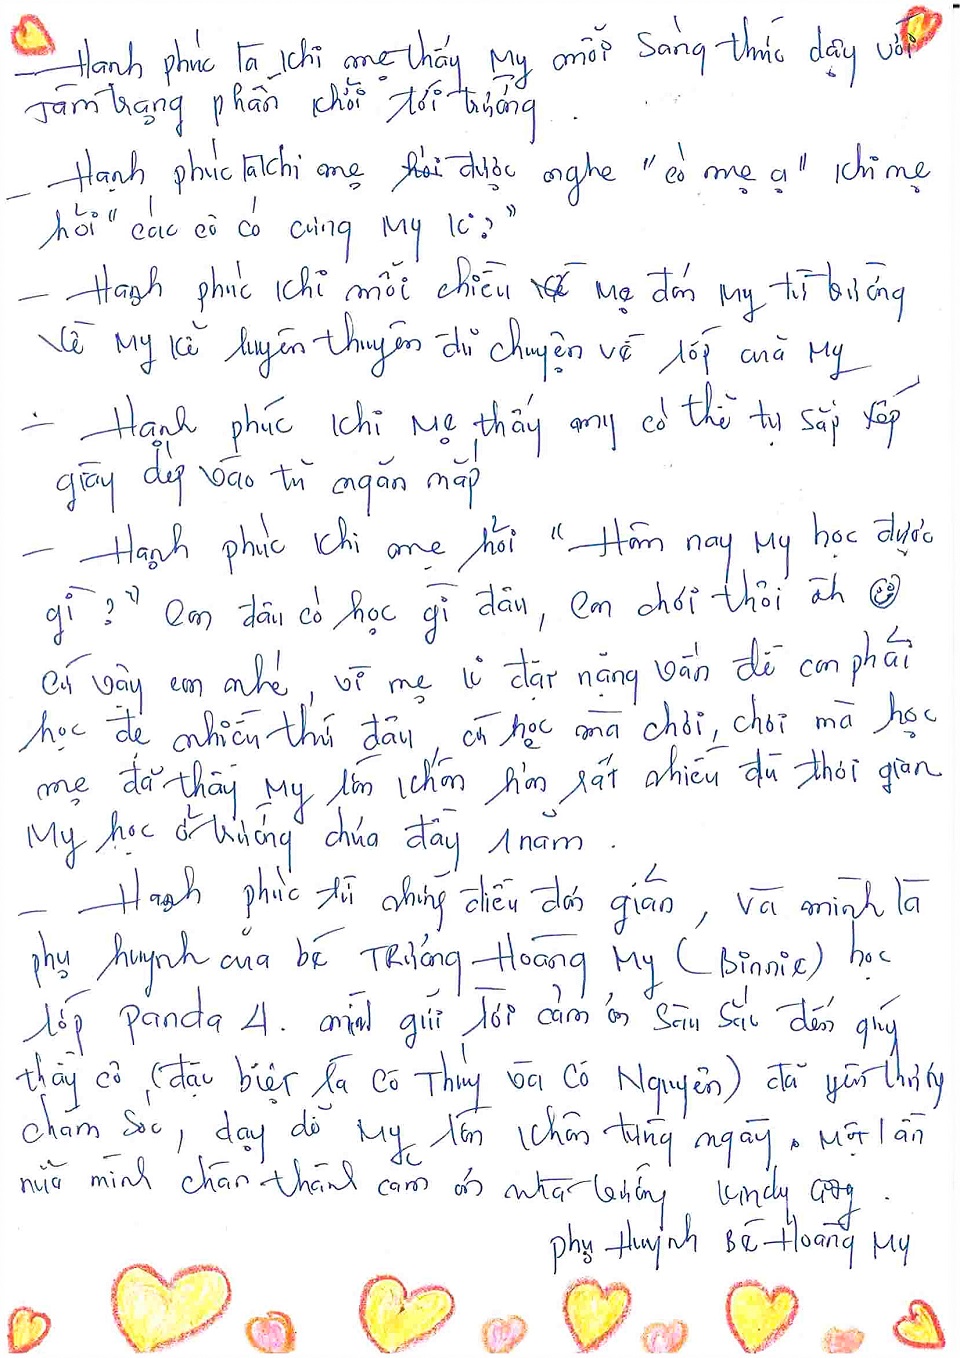 - Hạnh phúc là khi mẹ thấy My mỗi sáng thức dậy với
tâm trạng phấn khởi tới trường.
- Hạnh phúc là khi mẹ hỏi được nghe "có mẹ ạ" khi mẹ
hỏi "các cô có cưng My k?"
- Hạnh phúc khi mỗi chiều về Mẹ đón My từ trường
về My kể luyên thuyên đủ chuyện về lớp của My
- Hạnh phúc khi Mẹ thấy My có thể tự sắp xếp
giày dép vào tủ ngăn nắp
- Hạnh phúc khi mẹ hỏi "Hôm nay My học được
gì?" em đâu có học gì đâu, em chơi thôi àh
Cứ vậy em nhé, vì mẹ k đặt nặng vấn đề con phải
học để nhiều thứ đâu, cứ học mà chơi, chơi mà học
mẹ đã thấy My lớn khôn hơn rất nhiều dù thời gian
My học ở trường chưa đầy 1 năm.
- Hạnh phúc từ những điều đơn giản, và mình là
phụ huynh của bé Trương Hoàng My (Binnie) học
lớp Panda 4. mình gửi lời cảm ơn sâu sắc đến quý
thầy cô (đặc biệt là Cô Thuý và Cô Nguyên) đã yêu thương
chăm sóc, dạy dỗ My lớn khôn từng ngày. Một lần
nữa mình chân thành cảm ơn nhà trường
Phụ Huynh Bé Hoàng My